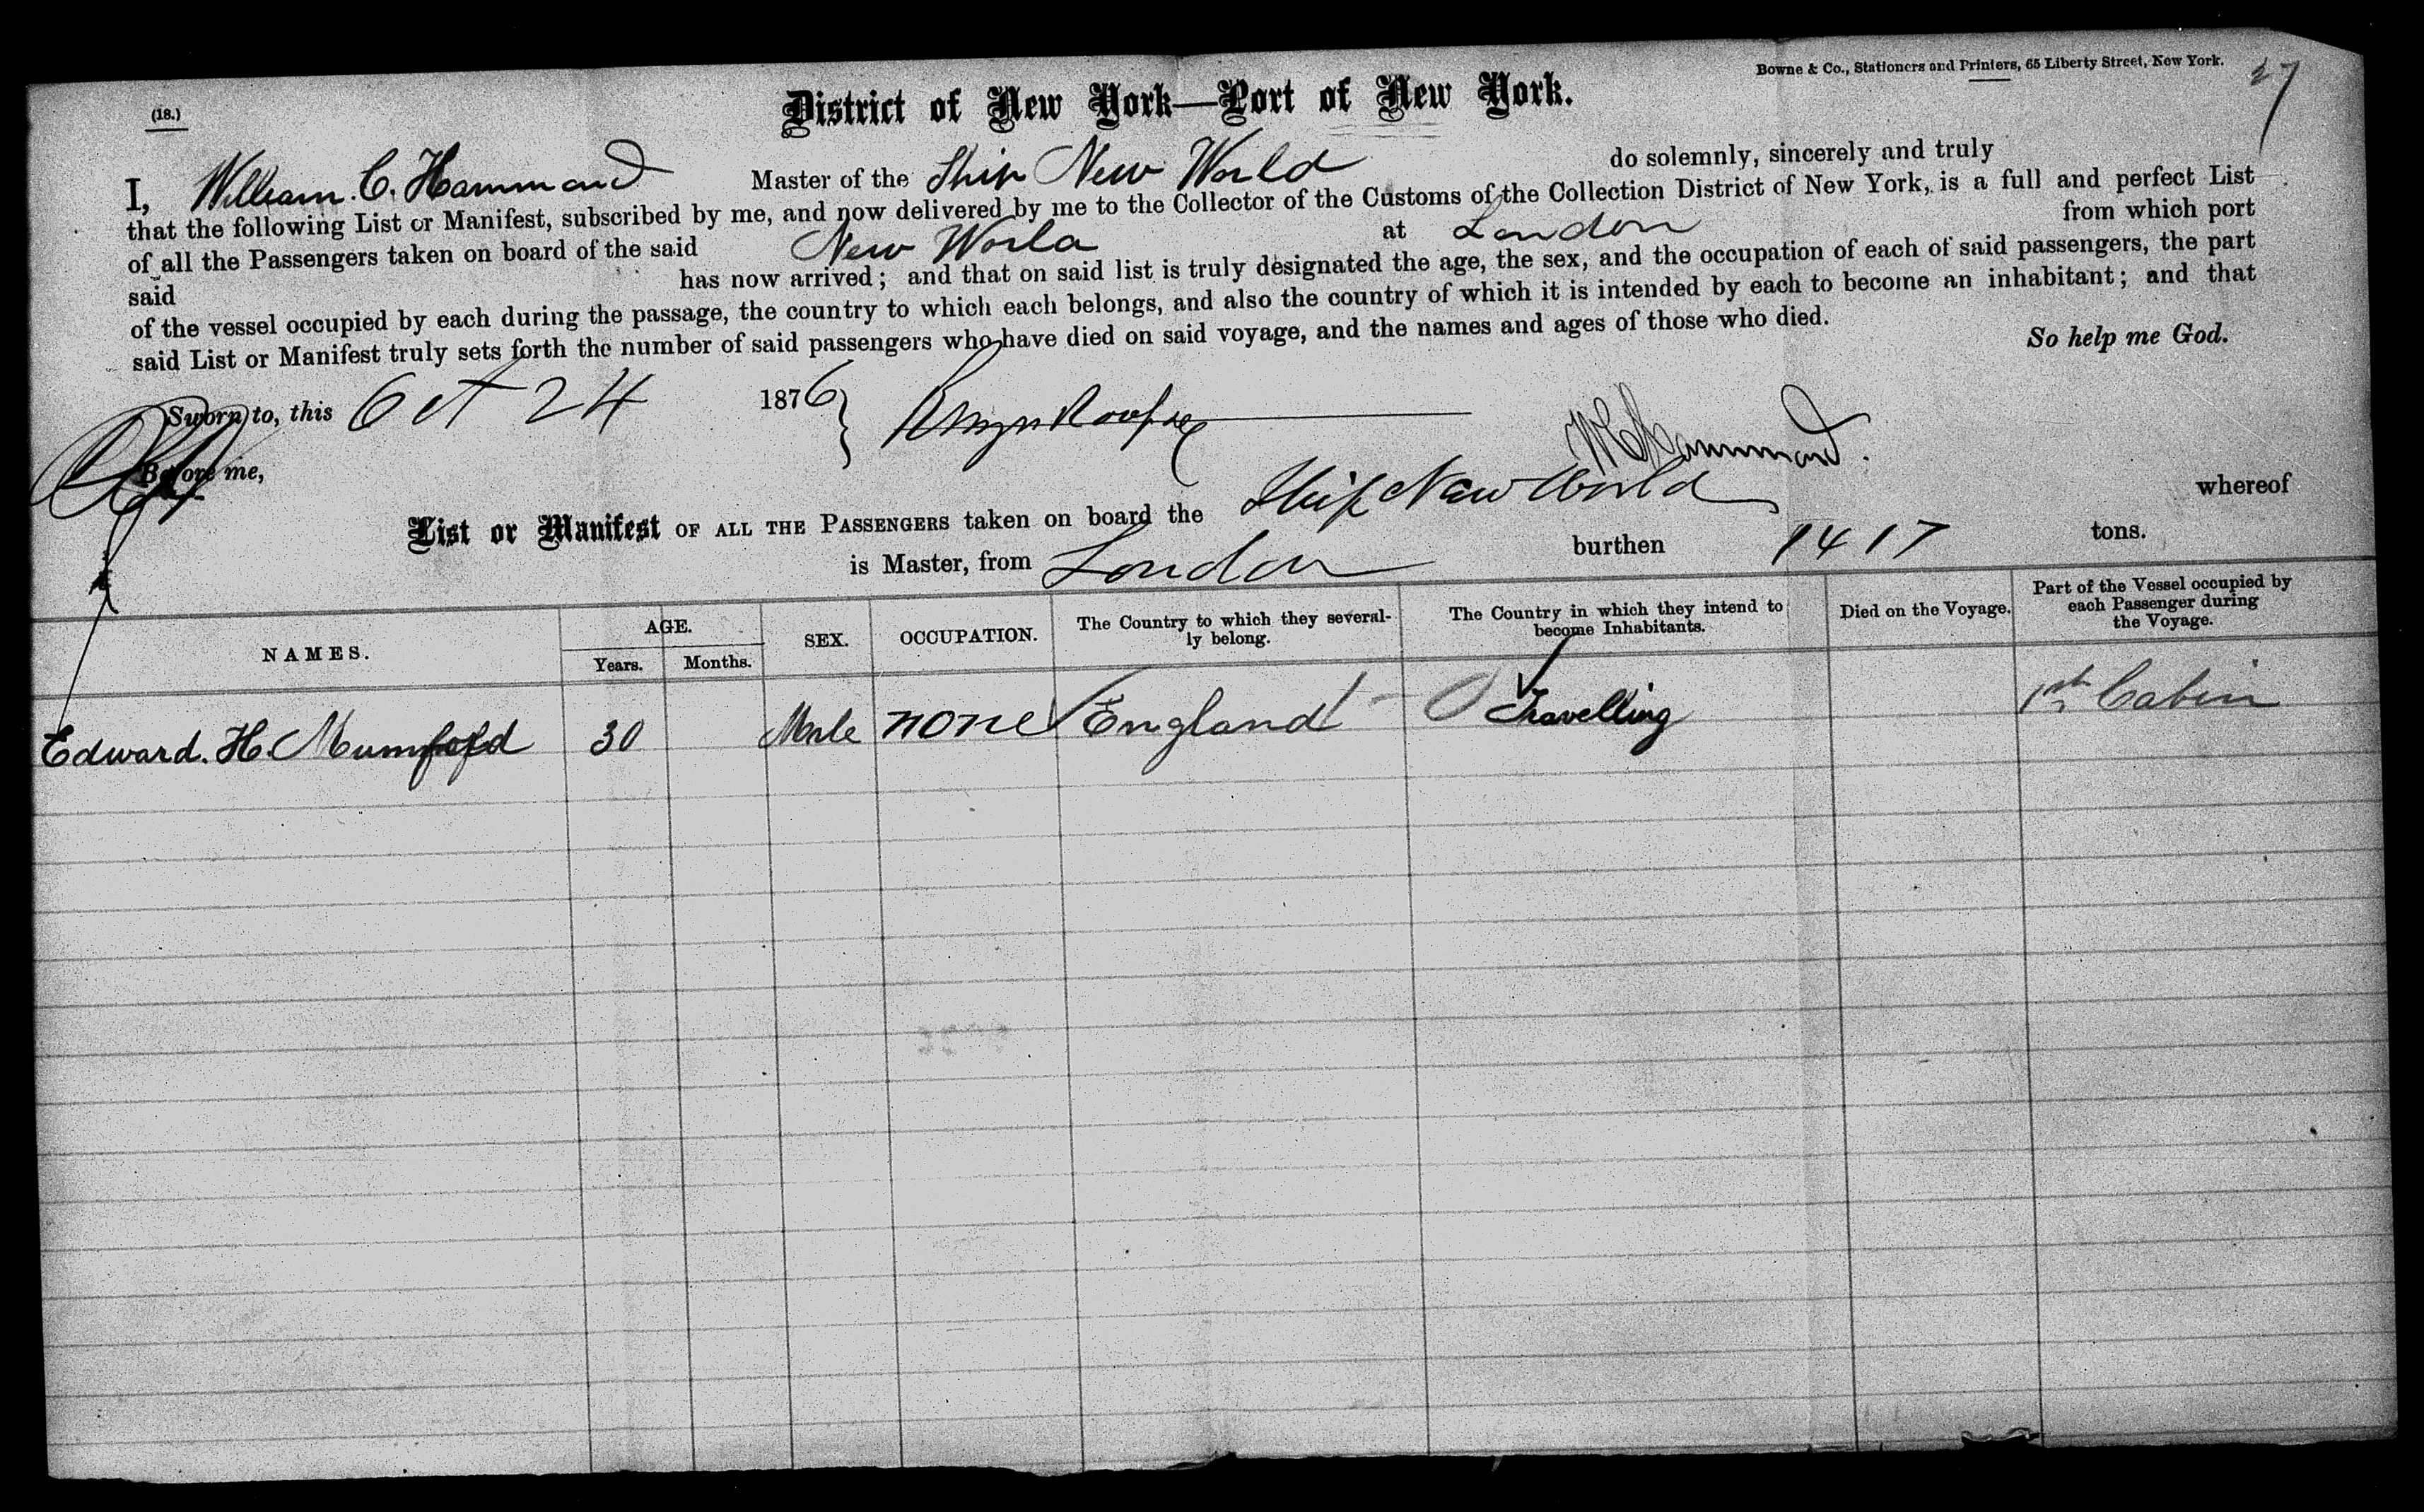 Bowne & Co., Stationers and Printers, 65 Liberty Street, New York.
27
(18.)
District of New York—Port of New York.
I, William. C. Hammond Master of the Ship New World do solemnly, sincerely and truly
that the following List or Manifest, subscribed by me, and now delivered by me to the Collector of the Customs of the Collection District of New York, is a full and perfect List
of all the Passengers taken on board of the said New World at London from which port
said has now arrived; and that on said list is truly designated the age, the sex, and the occupation of each of said passengers, the part
of the vessel occupied by each during the passage, the country to which each belongs, and also the country of which it is intended by each to become an inhabitant; and that
said List or Manifest truly sets forth the number of said passengers who have died on said voyage, and the names and ages of those who died.
So help me God.
Sworn to, this Oct 24 1876
W C Hammond.
Before me,
List or Manifest OF ALL THE PASSENGERS taken on board the Ship New World whereof
is Master, from London burthen 1417 tons.
NAMES. AGE. Years. Months. SEX. OCCUPATION. The Country to which they several-ly belong. The Country in which they intend to become Inhabitants. Died on the Voyage. Part of the Vessel occupied by each Passenger during the Voyage.
Edward. H. Mumford 30 Male none England Travelling 1st Cabin